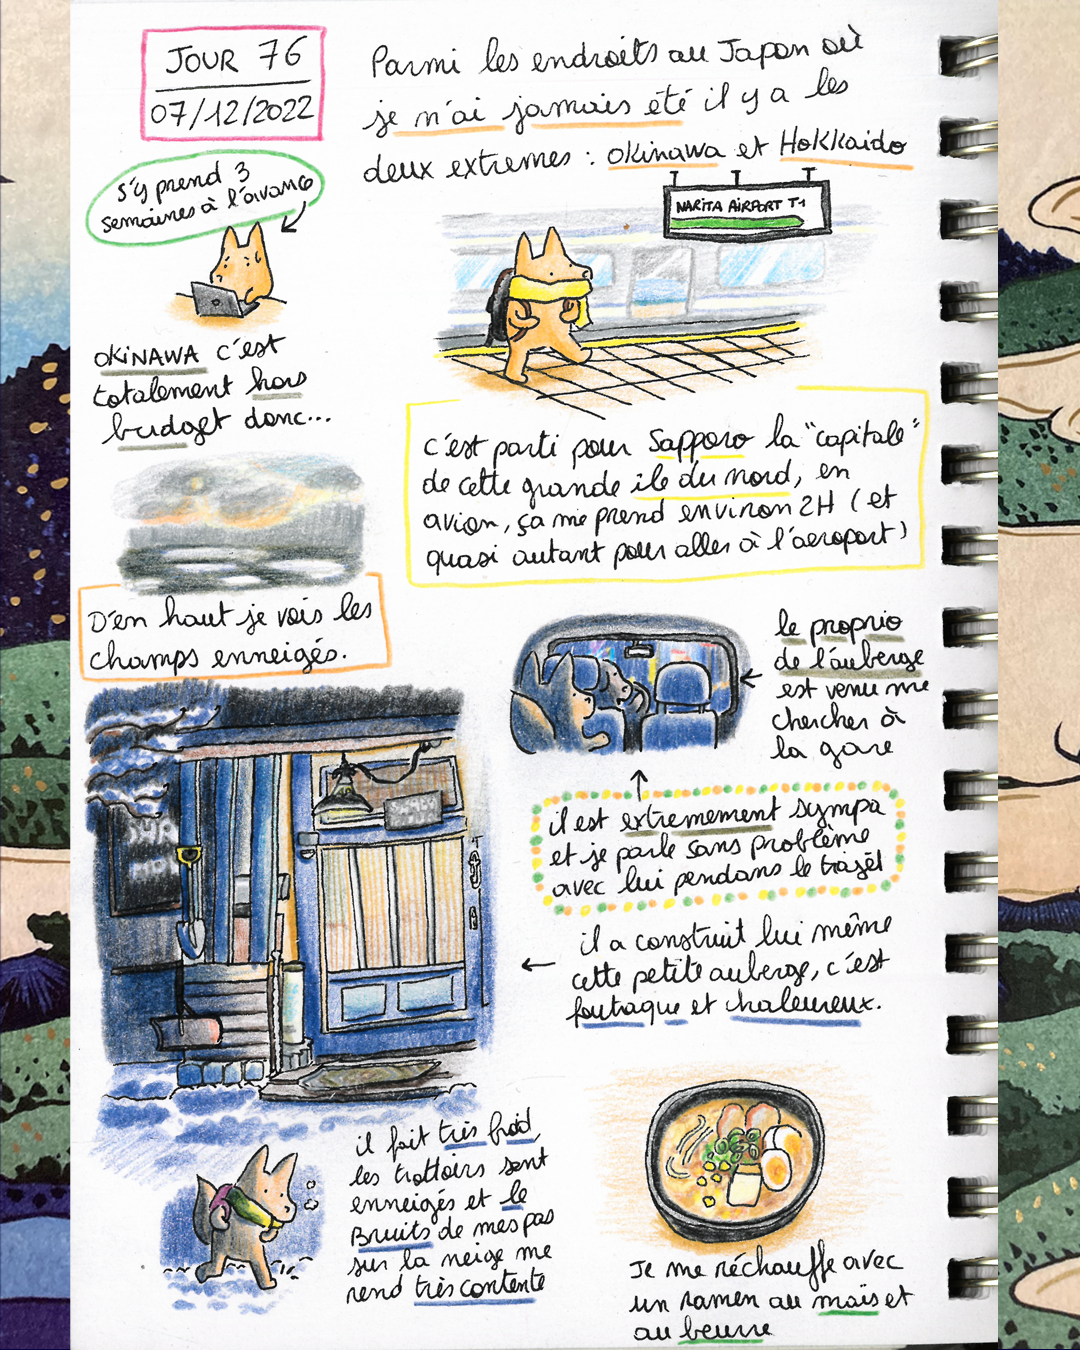 JOUR 76
07/12/2022
Parmi les endroits au Japon où
je n'ai jamais été il y a les
deux extremes : Okinawa et Hokkaido
s'y prend 3
semaines à l'avance
NARITA AIRPORT T1
OKINAWA c'est
totalement hors
budget donc...
C'est parti pour Sapporo la "capitale"
de cette grande ile du nord, en
avion, ça me prend environ 2H (et
quasi autant pour aller à l'aeroport)
D'en haut je vois les
champs enneigés.
le proprio
de l'auberge
est venu me
chercher à
la gare
il est extremement sympa
et je parle sans problème
avec lui pendans le trajet
il a construit lui même
cette petite auberge, c'est
foutraque et chaleureux.
il fait très froid,
les trottoirs sont
enneigés et le
Bruits de mes pas
sur la neige me
rend très contente
Je me réchauffe avec
un ramen au maïs et
au beurre